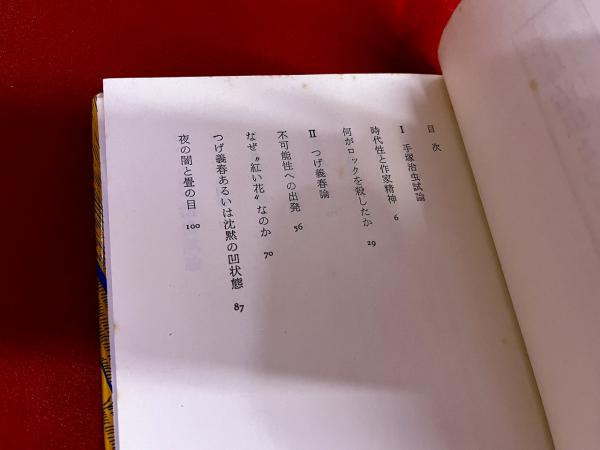 目次
I 手塚治虫試論
時代性と作家精神 6
何がロックを殺したか 29
II つげ義春論
不可能性への出発 56
なぜ〝紅い花〟なのか 70
つげ義春あるいは沈黙の凹状態 87
夜の闇と畳の目 100